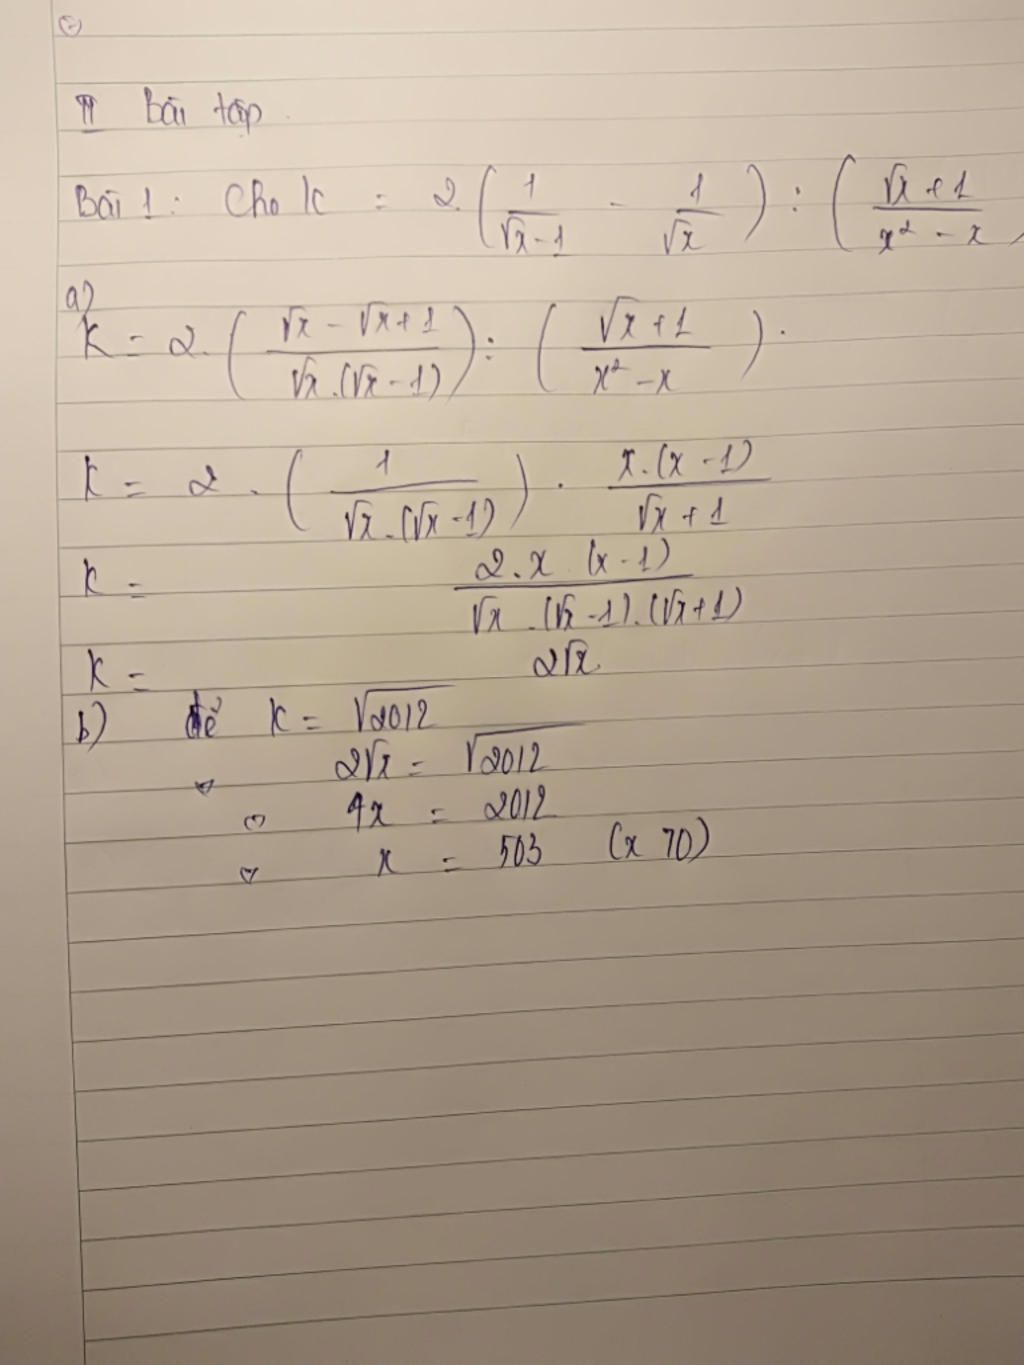 II Bài tập
Bài 1: Cho K = 2.(1/(√x-1) - 1/√x) : ((√x+1)/(x² - x)
a)
K = 2.((√x - √x+1)/(√x.(√x-1))) : ((√x+1)/(x²-x)).
K = 2.(1/(√x.(√x-1))) . (x.(x-1))/(√x+1)
K = (2.x (x-1))/(√x.(√x-1).(√x+1))
K = 2√x
b) để K = √2012
2√x = √2012
4x = 2012
x = 503 (x >0)